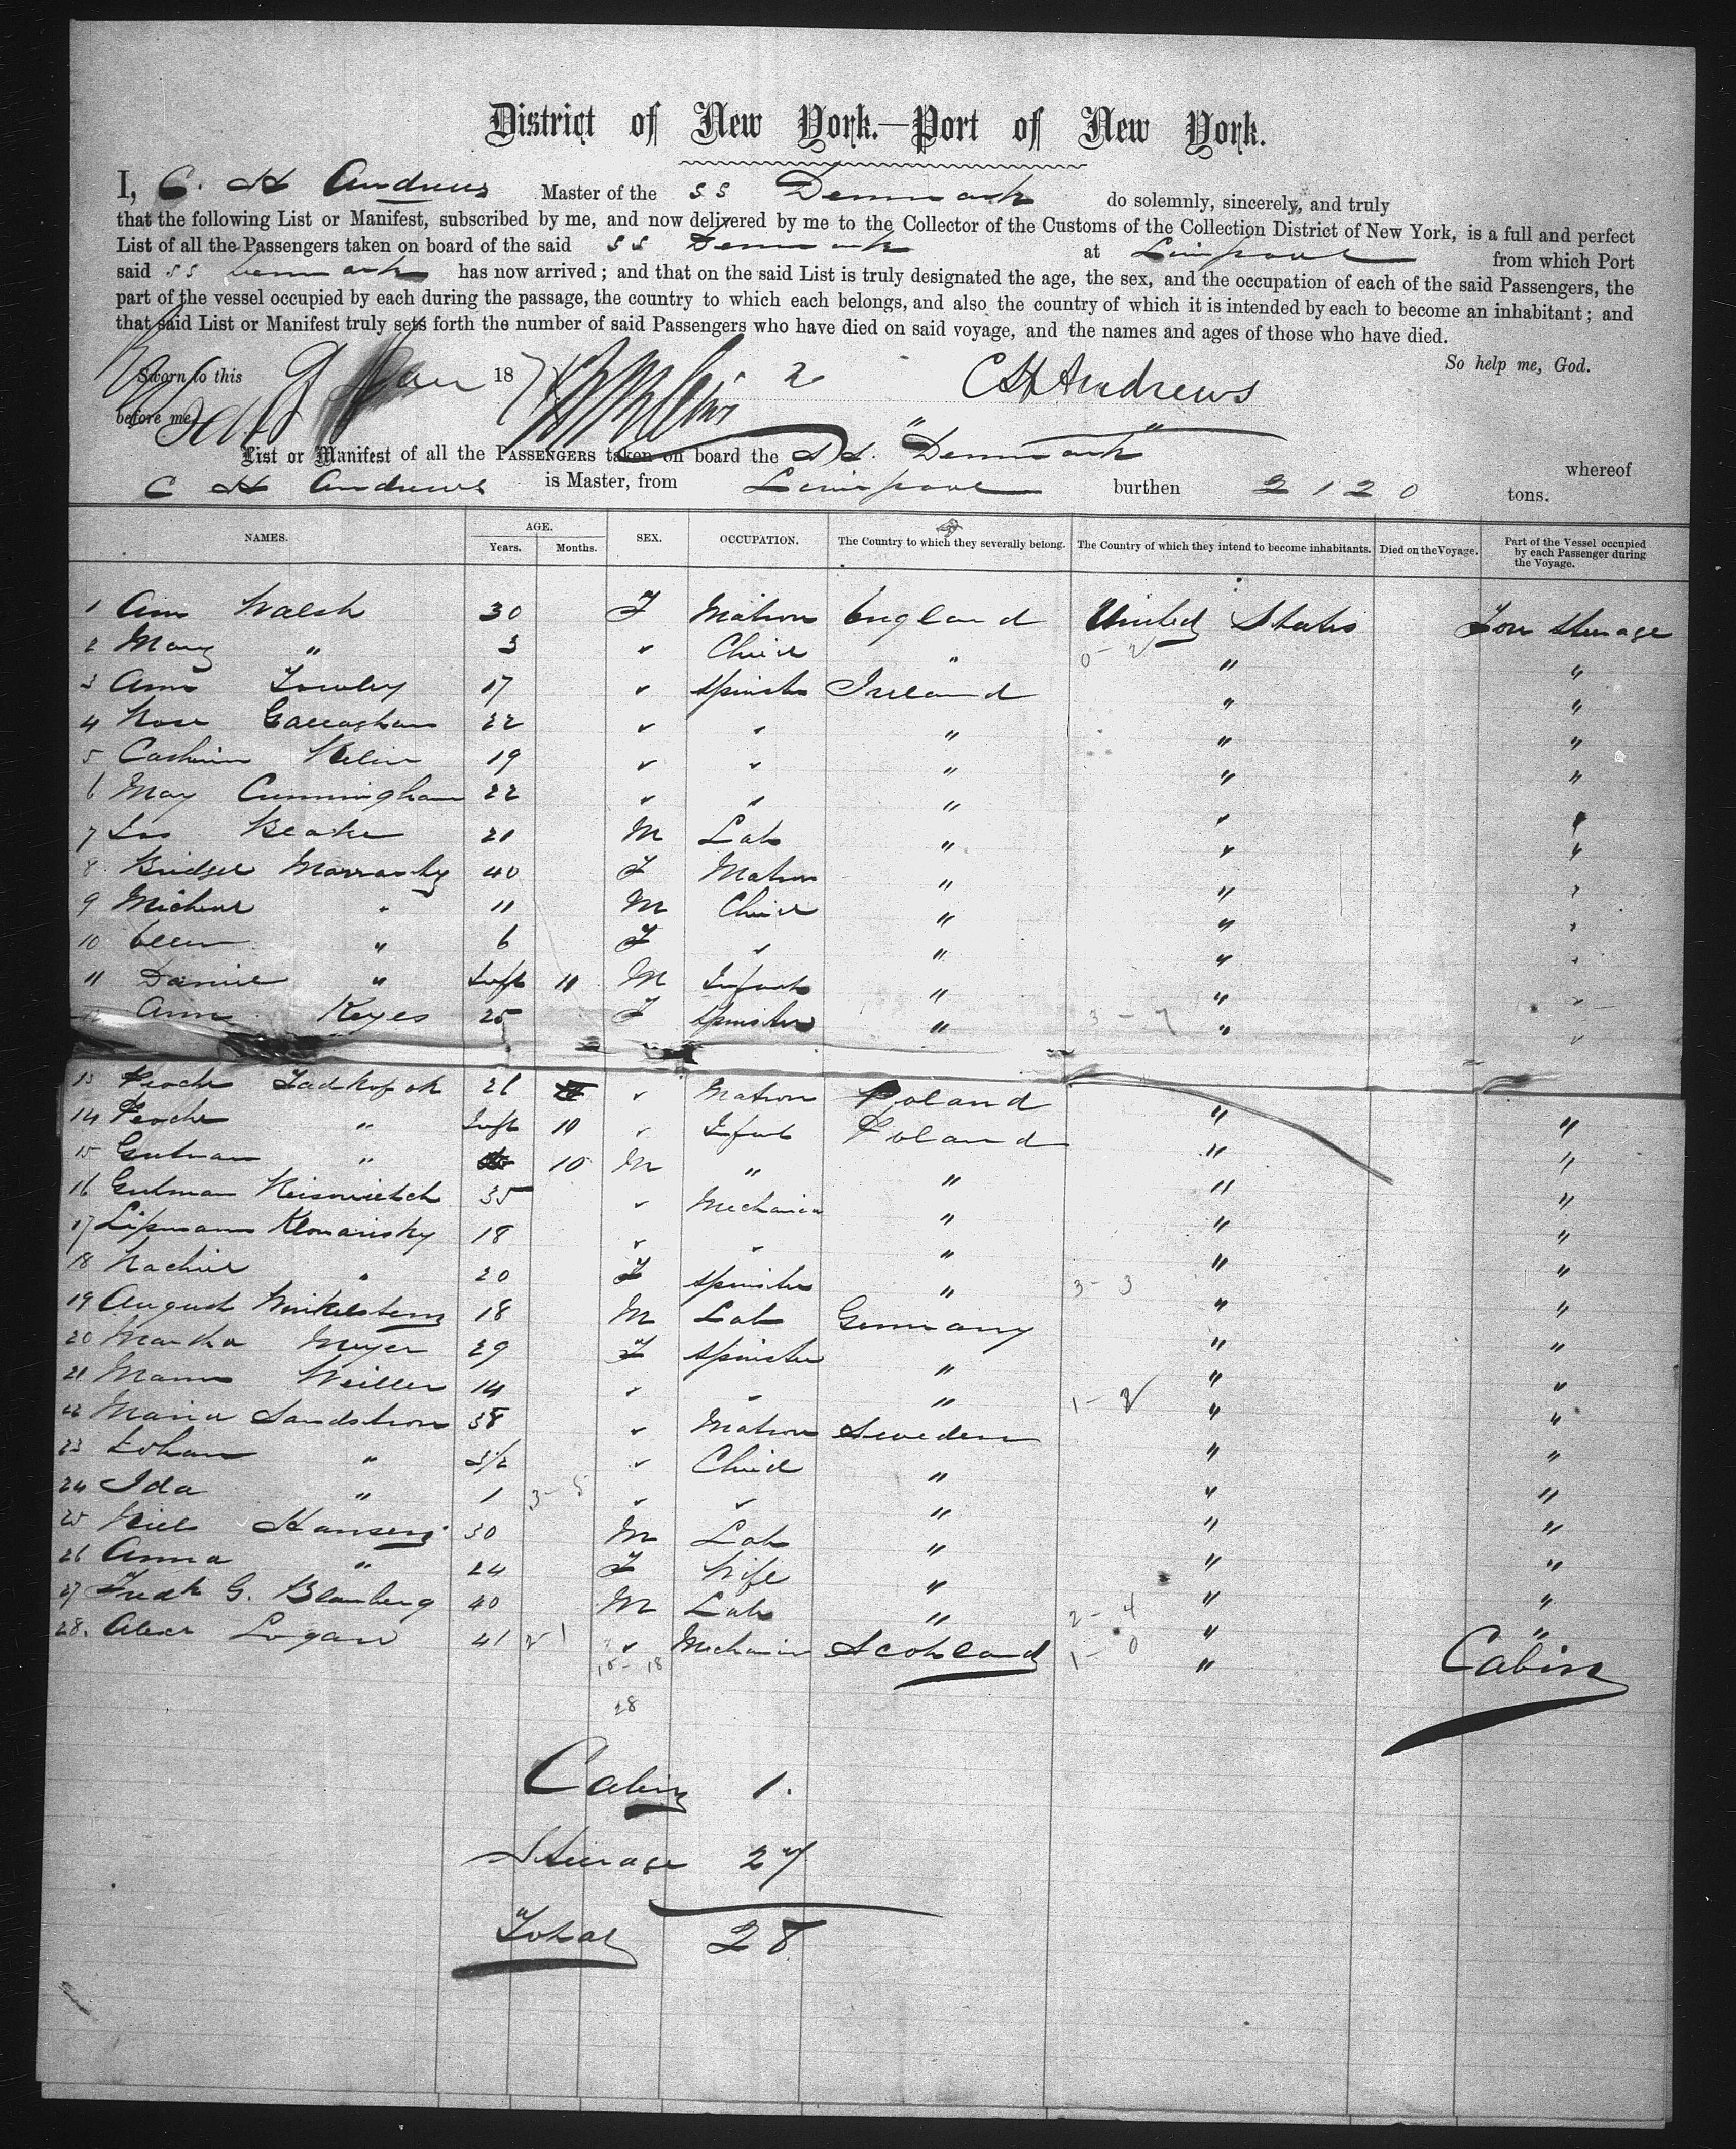 District of New York.—Port of New York.
I, C. H Andrews Master of the SS Denmark do solemnly, sincerely, and truly
that the following List or Manifest, subscribed by me, and now delivered by me to the Collector of the Customs of the Collection District of New York, is a full and perfect
List of all the Passengers taken on board of the said SS Denmark at Liverpool from which Port
said SS Denmark has now arrived; and that on the said List is truly designated the age, the sex, and the occupation of each of the said Passengers, the
part of the vessel occupied by each during the passage, the country to which each belongs, and also the country of which it is intended by each to become an inhabitant; and
that said List or Manifest truly sets forth the number of said Passengers who have died on said voyage, and the names and ages of those who have died.
So help me, God.
Sworn to this 9 Jan 187 2 C H Andrews
before me
List or Manifest of all the PASSENGERS taken on board the S.S. "Denmark" whereof
C H Andrews is Master, from Liverpool burthen 2120 tons.
NAMES. AGE. Years. Months. SEX. OCCUPATION. The Country to which they severally belong. The Country of which they intend to become inhabitants. Died on the Voyage. Part of the Vessel occupied by each Passenger during the Voyage.
1 Ann Walsh 30 F Matron England United States Fore Steerage
2 Mary " 3 " Child " " "
3 Ann 17 " Spinster Ireland " "
4 Rose Gallaghan 22 " " " " "
5 19 " " " " "
6 May Cunningham 22 " " " " "
7 21 M Lab " " "
8 Bridget 40 F Matron " " "
9 Michael " 11 M Child " " "
10 Ellen " 6 F " " " "
11 Daniel " Inft 11 M Infant " " "
12 Ann Keyes 25 F Spinster " " "
13 21 " Matron Poland " "
14 " Inft 10 " Infant Poland " "
15 Gutman " 10 M " " " "
16 Gutman 35 " Mechanic " " "
17 Lipmann 18 " " " " "
18 Rachiel " 20 F Spinster " " "
19 August 18 M Lab Germany " "
20 Martha Meyer 29 F Spinster " " "
21 Weiller 14 " " " " "
22 Maria Sandstrom 38 " Matron Sweden " "
23 Johan " 3 1/2 " Child " " "
24 Ida " 1 " " " " "
25 Niels Hansen 30 M Lab " " "
26 Anna " 24 F Wife " " "
27 Fredk G. Blomberg 40 M Lab " " "
28. Alexr Logan 41 " Mechanic Scotland " Cabin
28
Cabin 1.
Steerage 27
Total 28